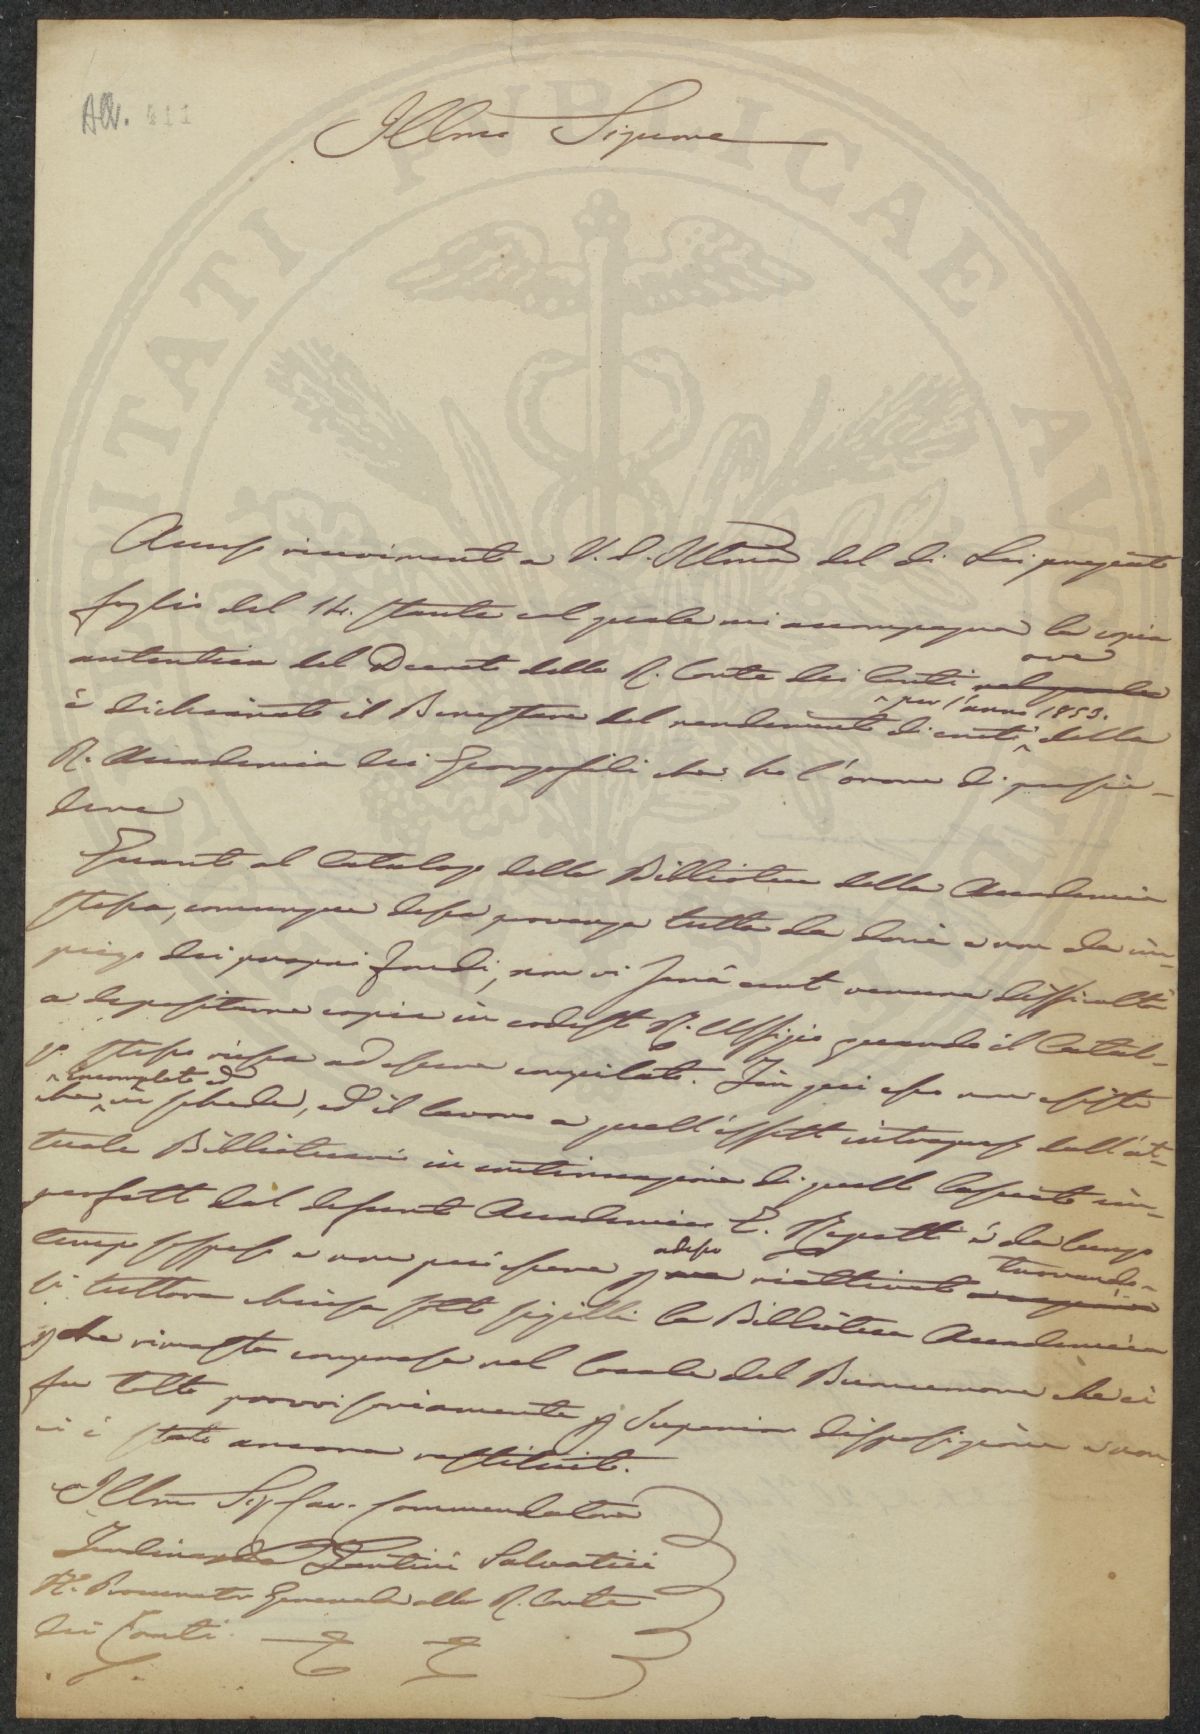 AU. 411
PROSPERITATI PVBLICAE AVGENDAE
Illmo Signore
Accuso ricevimento a V. S. Illma del di Lei pregiato
foglio del 14. stante col quale mi accompagna la copia
autentica del Decreto della R. Corte dei Conti nel quale ove
è dichiarato il Benestare del rendimento di conti per l'anno 1853. della
R. Accademia dei Georgofili che ho l'onore di presie-
dere
Quanto al Catalogo della Biblioteca della Accademia
stessa, comunque dessa provenga tutta da doni e non da im-
piego dei propri fondi, non vi sarà certo veruna difficoltà
a depositarne copia in codesto R. Uffizio quando il Catalo-
go stesso riesca ad essere compilato. Fin qui esso non esiste
che incompleto ed in schede, ed il lavoro a quell'effetto intrapreso dall'at-
tuale Bibliotecario in continuazione di quello lasciato im-
perfetto dal defunto Accademico E. Repetti è da lungo
tempo sospeso e non può essere adesso riattivato trovando-
si tuttora chiusa sotto sigilli la Biblioteca Accademica
che rimasta compresa nel locale del Buonumore che ci
fu tolto provvisoriamente p Superior disposizione e non
ci è stato ancora restituito.
Illmo Sig Cav. Commendatore
Ferdinando Fantini Salvatici
R. Procurator Generale alla R. Corte
dei Conti.